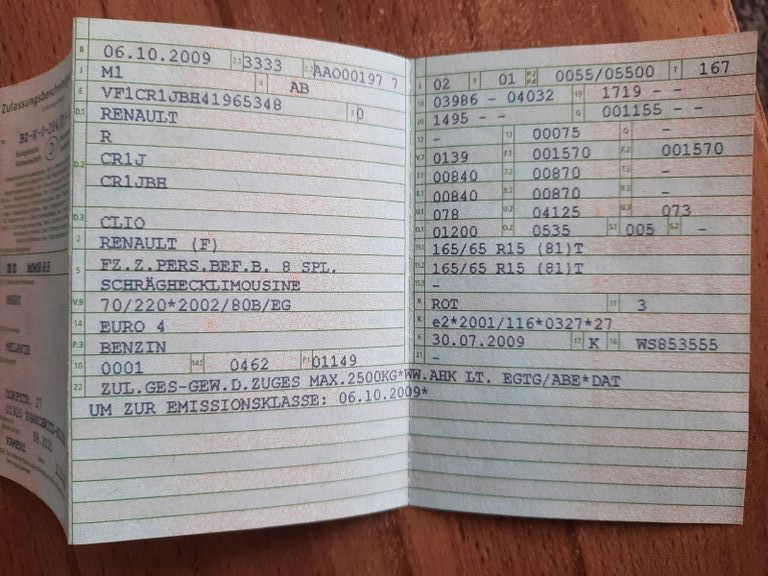 Zulassungsbescheinigung
B 06.10.2009 2.1 3333 2.2 AAO00197 7
J M1 4 AB
E VF1CR1JBH41965348 3 0
D.1 RENAULT
R
D.2 CR1J
CR1JBH
D.3 CLIO
2 RENAULT (F)
5 FZ.Z.PERS.BEF.B. 8 SPL.
SCHRÄGHECKLIMOUSINE
V.9 70/220*2002/80B/EG
14 EURO 4
P.3 BENZIN
10 0001 14.1 0462 P.1 01149
22 ZUL.GES-GEW.D.ZUGES MAX.2500KG*WW.AHK LT. EGTG/ABE*DAT
UM ZUR EMISSIONSKLASSE: 06.10.2009*
L 02 9 01 P.2 P.4 0055/05500 T 167
18 03986 - 04032 19 1719 - -
20 1495 - - G 001155 - -
12 - 13 00075 Q -
V.7 0139 F.1 001570 F.2 001570
7.1 00840 7.2 00870 7.3 -
8.1 00840 8.2 00870 8.3 -
U.1 078 U.2 04125 U.3 073
O.1 01200 O.2 0535 S.1 005 S.2 -
15.1 165/65 R15 (81)T
15.2 165/65 R15 (81)T
15.3 -
R ROT 11 3
K e2*2001/116*0327*27
6 30.07.2009 17 K 16 WS853555
21 -